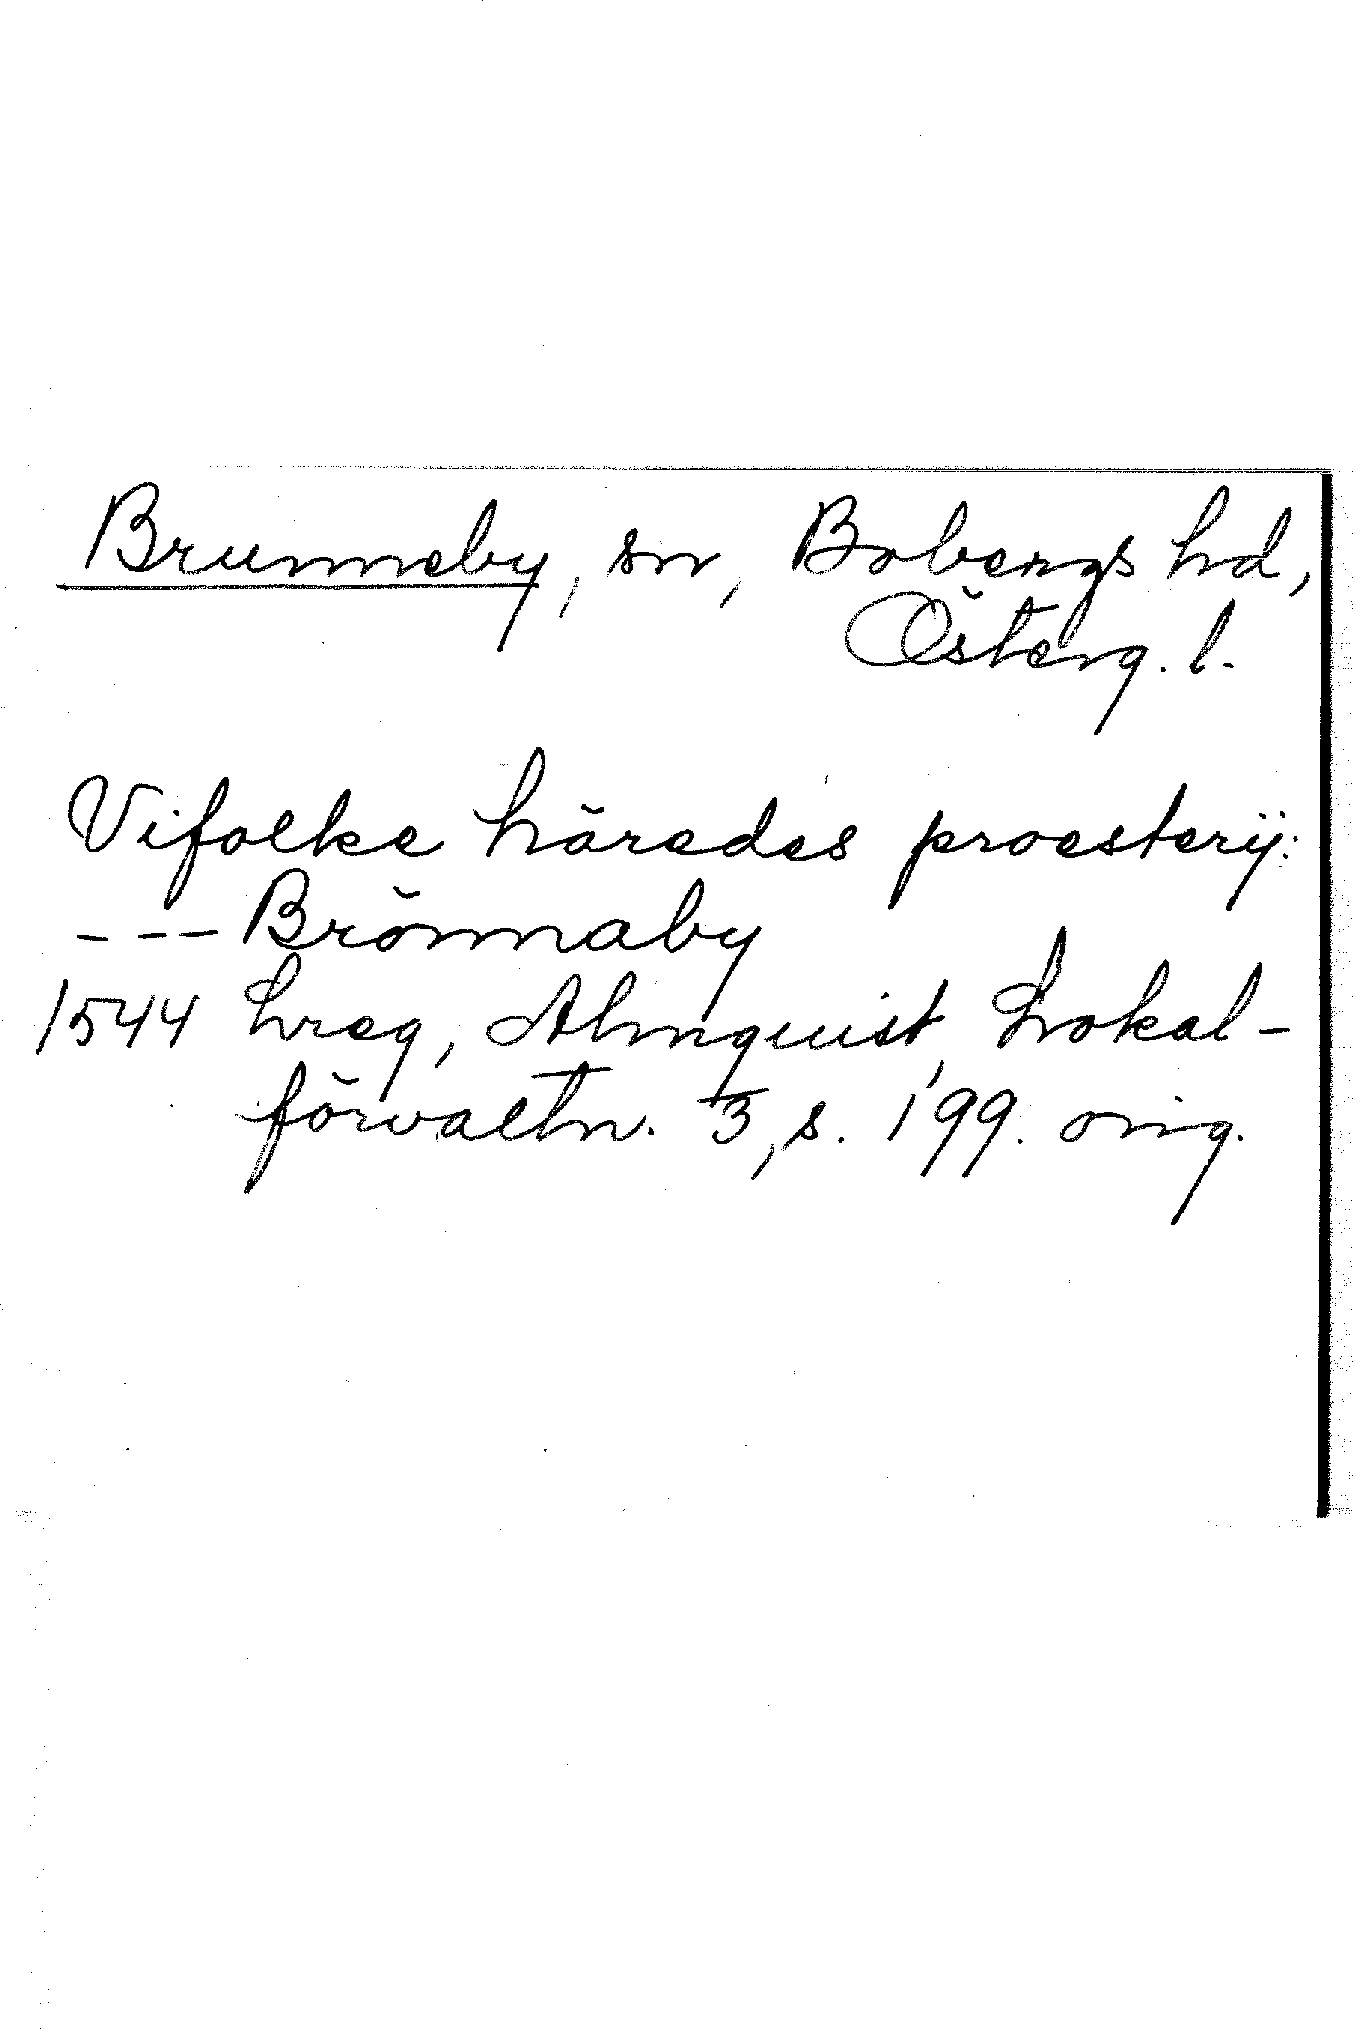 Brunneby, sn, Bobergs hd,
Österg. l.
Vifolke härades proesterij:
--- Brönnaby
1544 Lreg, Almquist, Lokal-
förvaltn. 3, s. 199. orig.